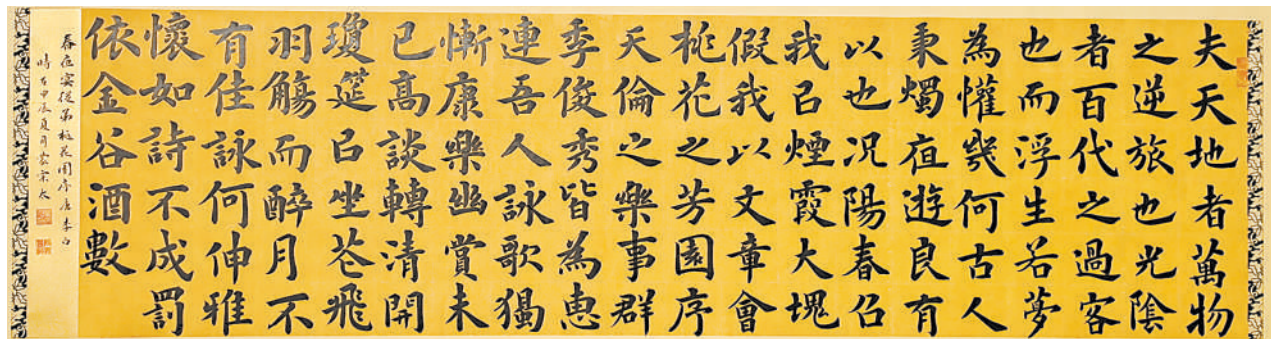 夫天地者萬物
之逆旅也光陰
者百代之過客
也而浮生若夢
為懽幾何古人
秉燭夜遊良有
以也况陽春召
我㠯煙霞大塊
假我以文章會
桃花之芳園序
天倫之樂事群
季俊秀皆為惠
連吾人詠歌獨
慚康樂幽賞未
已高談轉清開
瓊筵㠯坐花飛
羽觴而醉月不
有佳詠何伸雅
懷如詩不成罰
依金谷酒數
春夜宴從弟桃花園序唐李白
時在甲辰夏月宗太